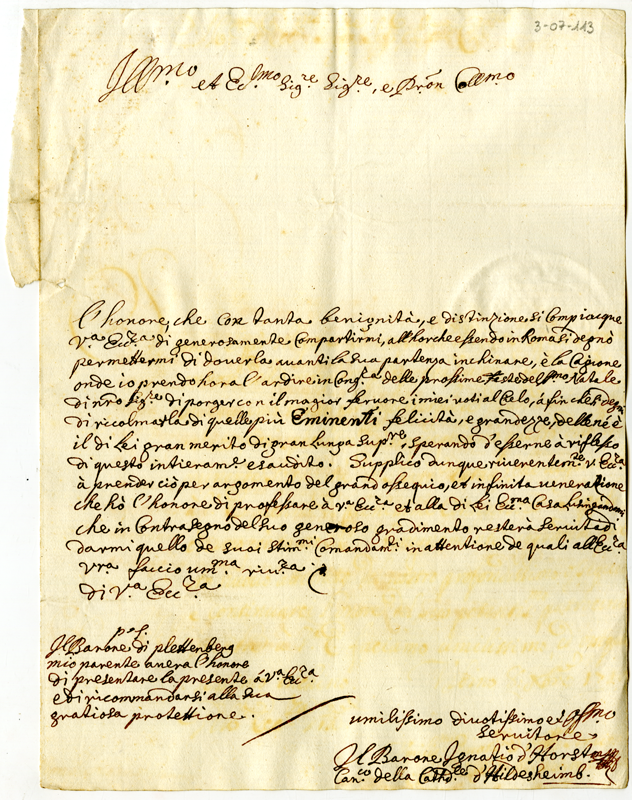 3-07-113
Ill.mo et Ecc.mo Sig.re Sig.re, e Pron Coll.mo
L'honore, che con tanta benignità, e distinzione si Compiacque
V.a Ecc.za di generosamente Compartirmi, all'horche essendo in Roma si degnò
permettermi di doverla avanti la sua partenza inchinare, è la Cagione
onde io prendo hora l'ardire in Cong.a delle prossime feste del S.mo Natale
di nro Sig.re di porger con il magior fervore i miei voti al Celo, à fin che si degni
di ricolmarla di quelle più Eminenti felicità, e grandezze, delle né è
il di Lei gran merito di gran lunga Sup.re, sperando d'esserne à riflesso
di questo intieram.e esaudito. Supplico dunque riverentem.te V. Ecc.za
à prender ciò per argomento del grand ossequio, et infinita veneratione
che hò l'honore di professare à V.a Ecc.za et alla di Lei Ecc.ma Casa,
che in Contrasegno del suo generoso gradimento resterà servita di
darmi quello de suoi stim.mi Comandam.ti in attentione de quali all'Ecc.za
Vra faccio um.ma riv.za
di V.a Ecc.za
p.s.
Il Barone di plettenberg
mio parente averà l'honore
di presentare la presente à V.a Ecc.za
e di ricommandarsi alla sua
gratiosa protettione.
umilissimo divotissimo et
servitore
Il Barone Ignatio d'Horst
Can.co della Cathd.le d'Hildesheimb.